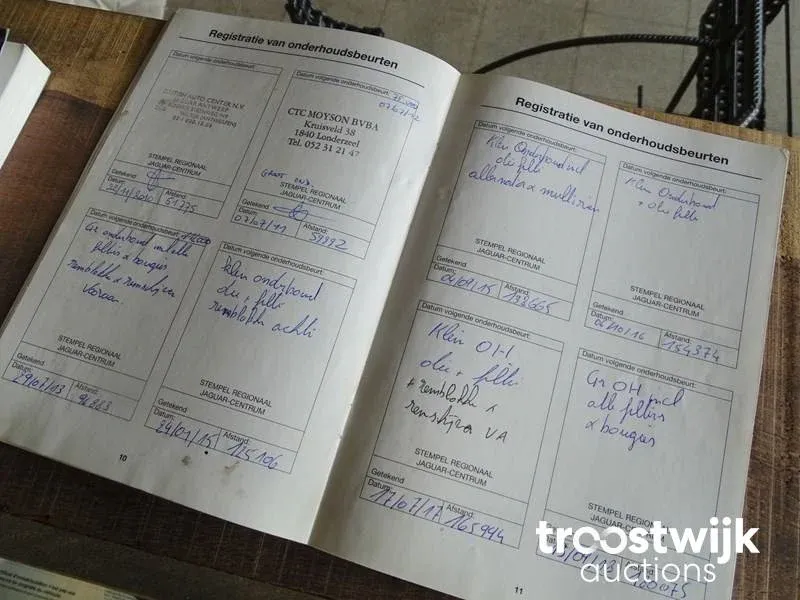 Registratie van onderhoudsbeurten
Datum volgende onderhoudsbeurt:
BRITISH AUTO CENTER N.V.
JAGUAR ANTWERP
STEMPEL REGIONAAL
JAGUAR-CENTRUM
Getekend
Datum: Afstand:
51275
Datum volgende onderhoudsbeurt:
07/07/12
CTC MOYSON BVBA
Kruisveld 38
1840 Londerzeel
Tel. 052 31 21 47
GROOT OND.
STEMPEL REGIONAAL
JAGUAR-CENTRUM
Getekend
Datum: Afstand:
07/07/11 59992
Datum volgende onderhoudsbeurt:
Gr onderhoud
filters x bougies
remblokken x remschijven
vooraan
STEMPEL REGIONAAL
JAGUAR-CENTRUM
Getekend
Datum: Afstand:
29/07/13
Datum volgende onderhoudsbeurt:
Klein onderhoud
olie + filter
remblokken achter
STEMPEL REGIONAAL
JAGUAR-CENTRUM
Getekend
Datum: Afstand:
29/01/15 125106
10
Registratie van onderhoudsbeurten
Datum volgende onderhoudsbeurt:
Klein Onderhoud incl
olie filter
alternator x multiriem
STEMPEL REGIONAAL
JAGUAR-CENTRUM
Getekend
Datum: Afstand:
04/09/15 138665
Datum volgende onderhoudsbeurt:
Klein Onderhoud
+ olie filter
STEMPEL REGIONAAL
JAGUAR-CENTRUM
Getekend
Datum: Afstand:
04/10/16 154374
Datum volgende onderhoudsbeurt:
Klein OH
olie + filter
+ remblokken x
remschijven VA
STEMPEL REGIONAAL
JAGUAR-CENTRUM
Getekend
Datum: Afstand:
17/07/17 165994
Datum volgende onderhoudsbeurt:
Gr OH incl
alle filters
x bougies
STEMPEL REGIONAAL
JAGUAR-CENTRUM
Getekend
11
troostwijk
auctions